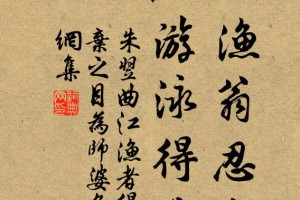 漁翁忍
游泳得
朱翌曲江漁者得
棄之目為師婆
網集